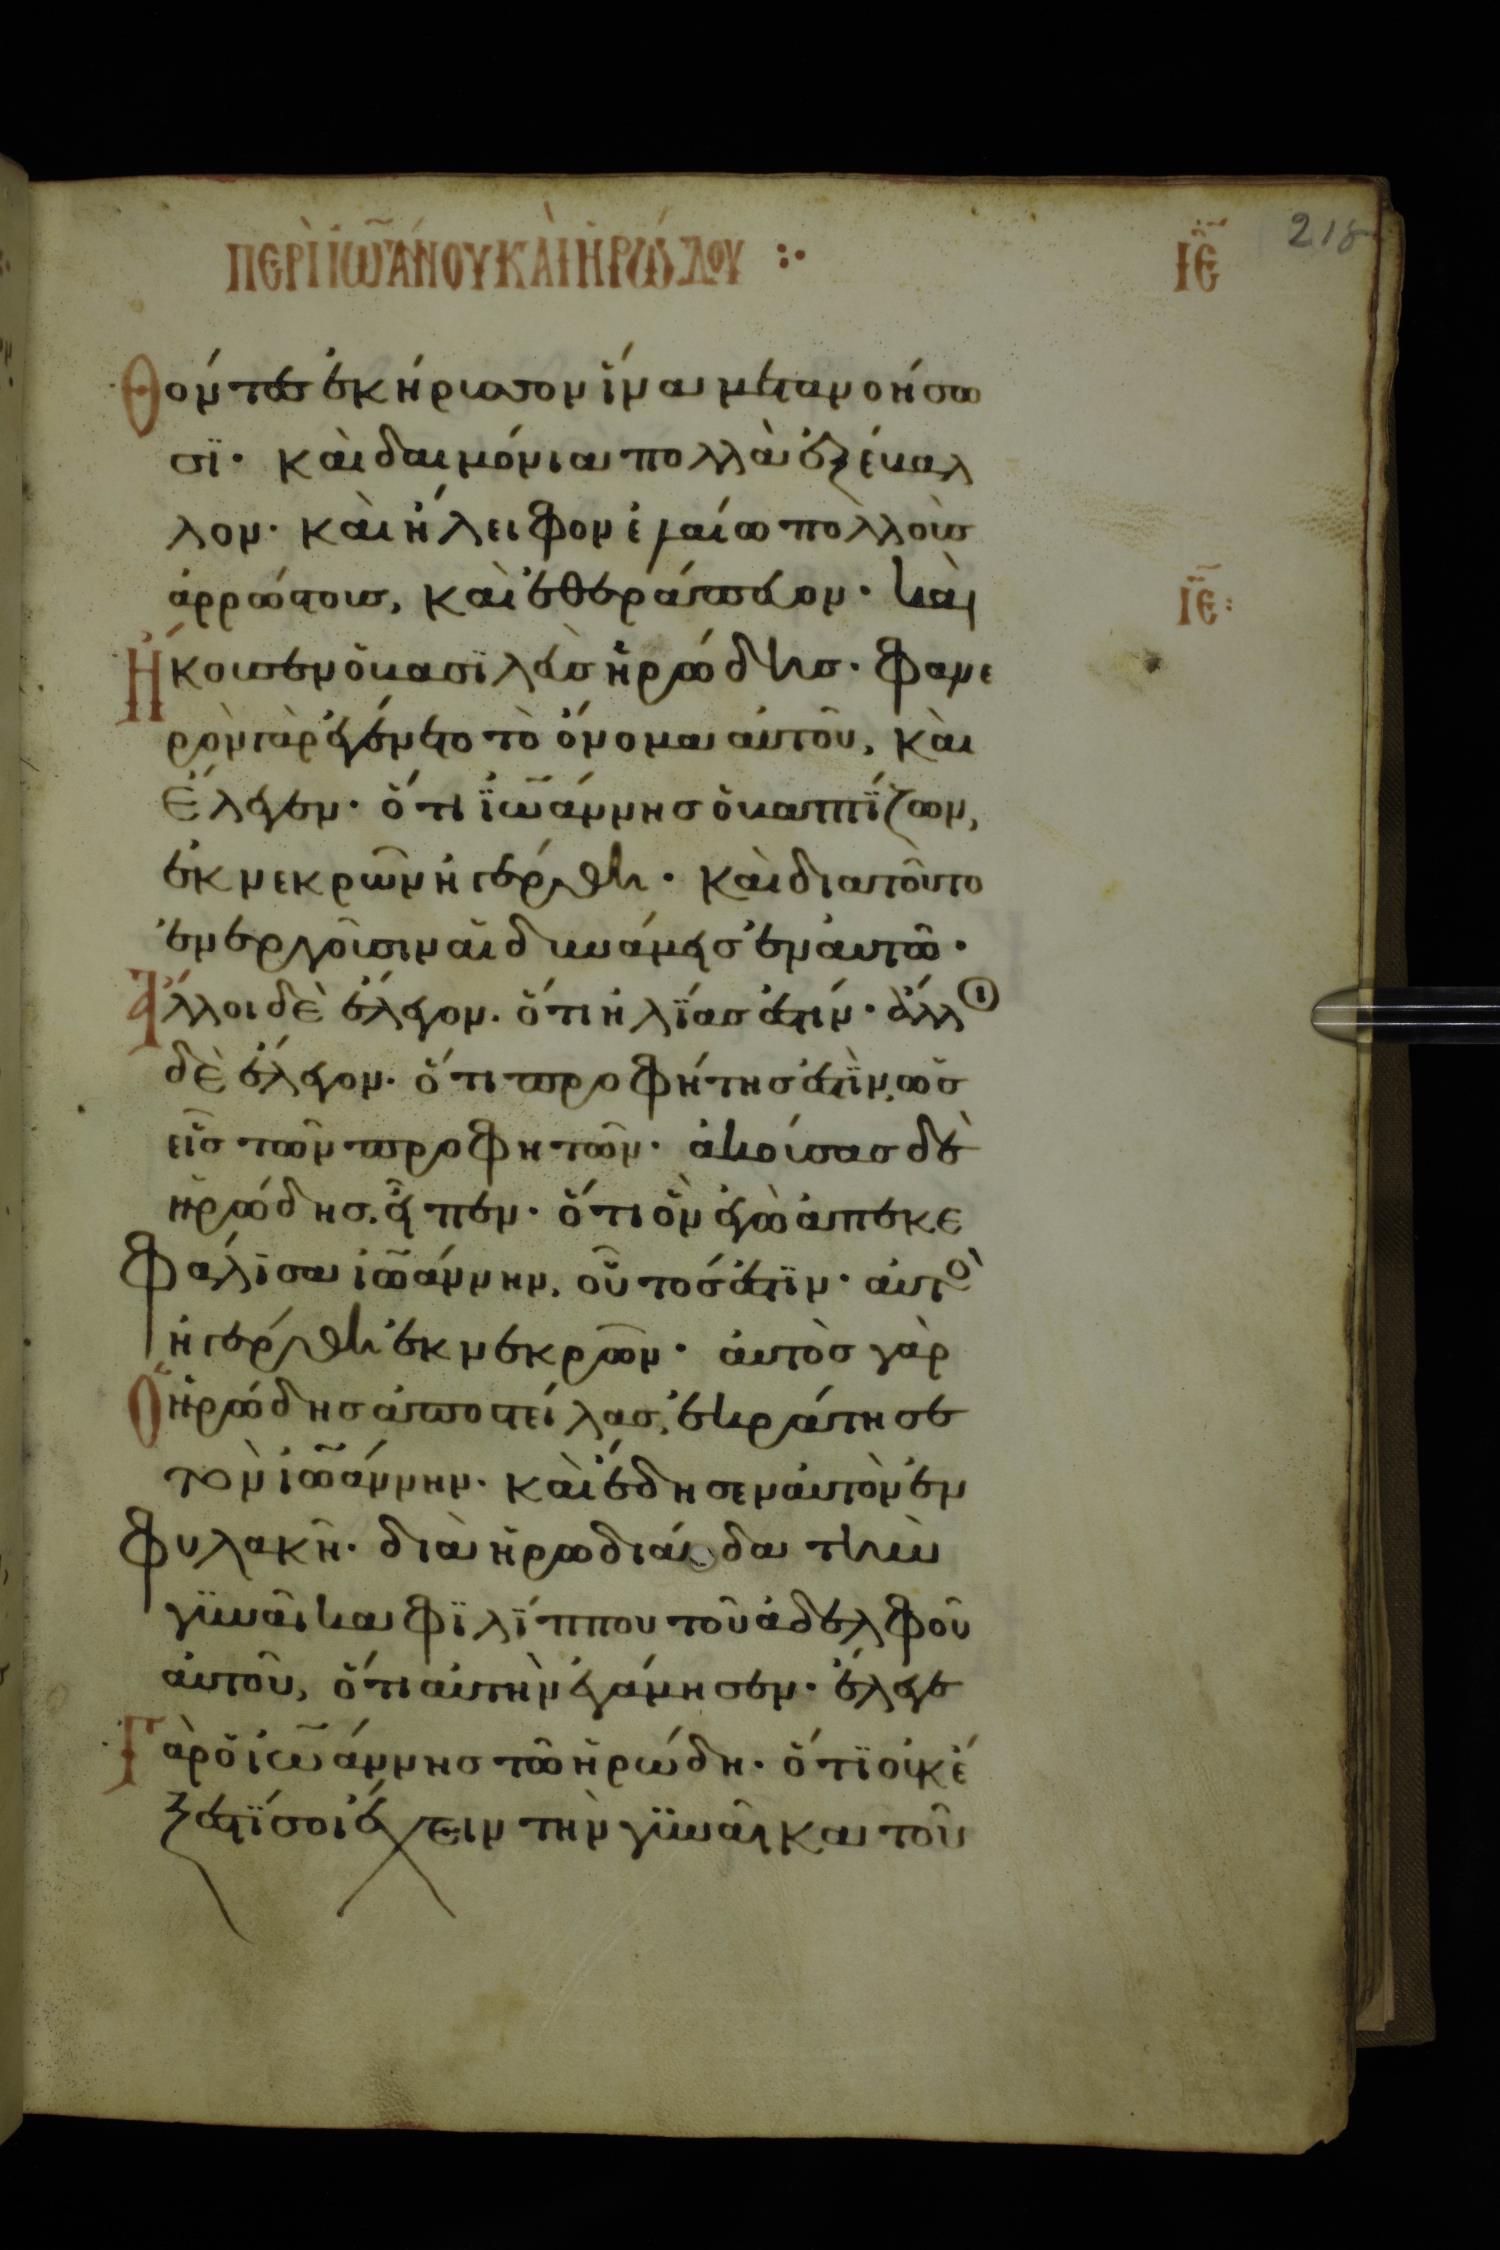 218
ΠΕΡῚ ἸΩ͂ΆΝΟΥ ΚΑῚ ἩΡΏΔΟΥ :· ΙΕ
Θόντες ἐκήρυσσον ἵνα μετανοήσω
σϊ· καὶ δαιμόνια πολλὰ ἐξέβαλ
λον· καὶ ἤλειφον ἐλαίω πολλοὺσ
ἀρρώστουσ, καὶ ἐθεράπευον· καὶ ΙΕ:
Ἤκουσεν ὁ βασϊλεὺσ ἡρώδησ· φανε
ρὸν γὰρ ἐγένετο τὸ ὄνομα αὐτοῦ, καὶ
Ἔλεγεν· ὅτι ϊω̃άννησ ὁ βαπτΐζων,
ἐκ νεκρῶν ἠγέρθη· καὶ διατοῦτο
ἐνεργοῦσιν αἱ δυνάμεισ ἐν αὐτῶ·
Ἄλλοι δὲ ἔλεγον· ὅτι ἠλΐασ ἐστίν· ἄλλοι
δὲ ἔλεγον· ὅτι προφήτησ ἐστϊν, ὡσ
εἷσ τῶν προφητῶν· ἀκούσασ δὲ
ἡρώδησ, εἶπεν· ὅτι ὃν ἐγὼ ἀπεκε
φάλϊσα ἰω̃άννην, οὗτόσ ἐστϊν· αὐτὸσ
ἠγέρθη ἐκ νεκρῶν· αὐτὸσ γὰρ
Ὁ ἡρώδησ ἀποστείλασ, ἐκράτησε
τὸν ἰω̃άννην· καὶ ἔδησεν αὐτὸν ἐν
φυλακῆ· διὰ ἡρωδιάδα τὴν
γϋναῖκα φϊλΐππου τοῦ ἀδελφοῦ
αὐτοῦ, ὅτι αὐτὴν ἐγάμησεν· ἔλεγε
Γὰρ ὁ ἰω̃άννησ τῶ ἡρώδη· ὅτϊ οὐκ ἔ
ξεστΐ σοι ἔχειν τὴν γϋναῖκα τοῦ